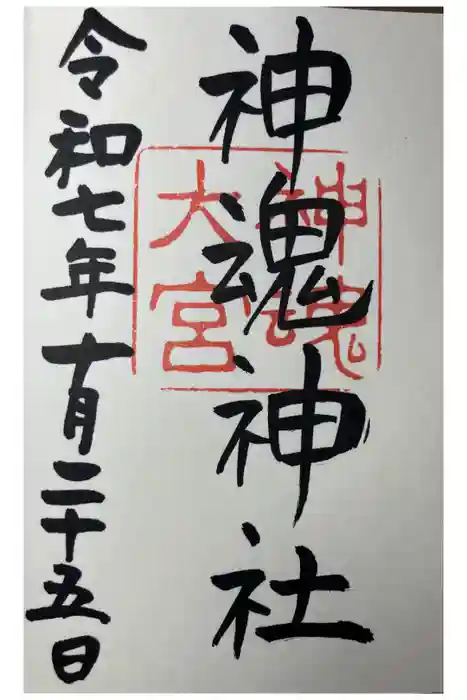 神魂神社
神魂
大宮
令和七年十月二十五日